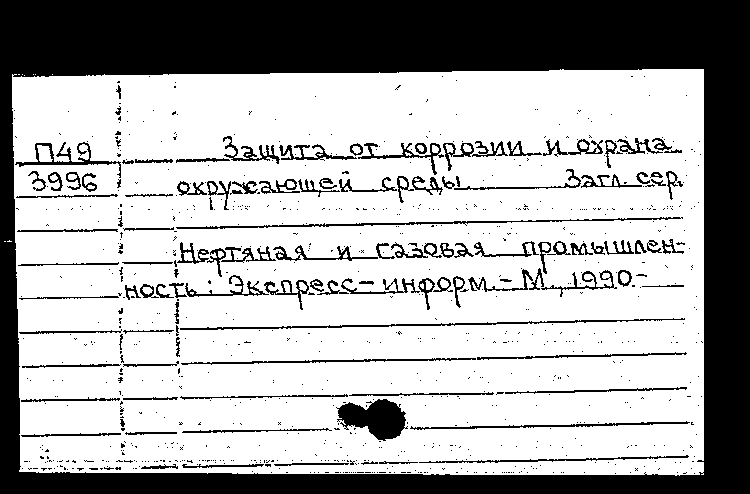 П49 Защита от коррозии и охрана
3996 окружающей среды Загл. сер.
Нефтяная и газовая промышлен-
ность: Экспресс-информ. - М., 1990-